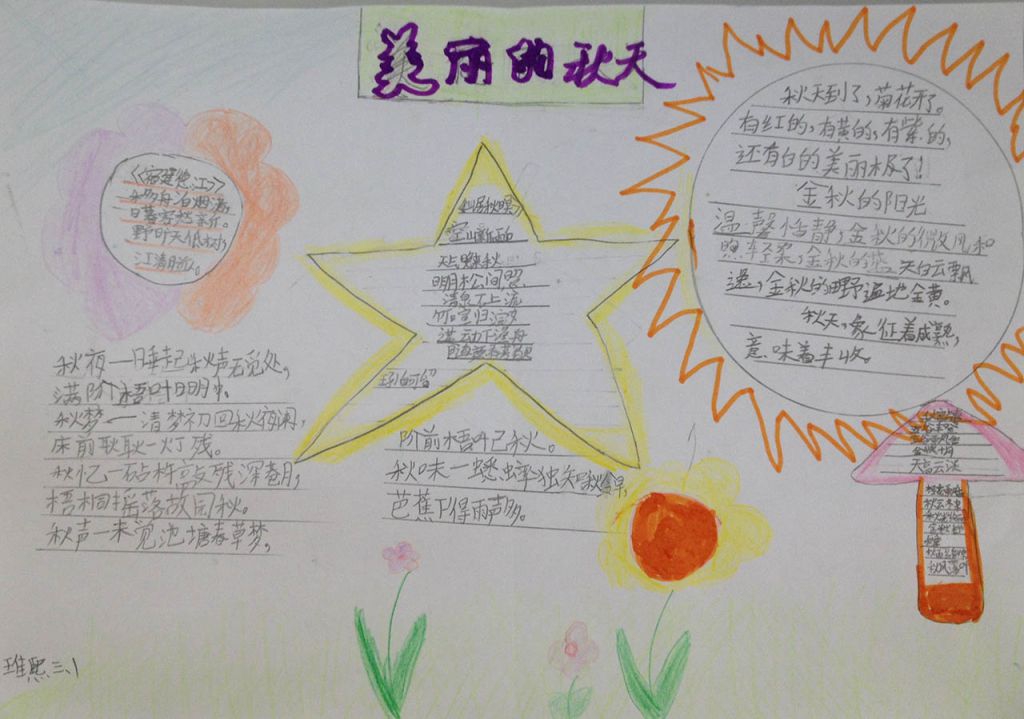 美丽的秋天
《宿建德江》
移舟泊烟渚
日暮客愁新。
野旷天低树,
江清月近人。
山居秋暝
空山新雨
天气晚秋
明月松公间照
清泉石上流
竹喧归浣女
莲动下渔舟
王孙自可留
秋天到了,菊花开了。
有红的,有黄的,有紫的,
还有白的美丽极了!
金秋的阳光
温馨恬静,金秋的微风和
煦轻柔,金秋的蓝天白云飘
逸,金秋的田野遍地金黄。
秋天,象征着成熟,
意味着丰收。
秋夜一睡起秋声无觅处,
满阶梧叶月明中
秋梦一清梦初回秋夜阑,
床前耿耿一灯残。
秋忆一砧杵敲残深巷月,
梧桐摇落故园秋。
秋声一未觉池塘春草梦,
阶前梧叶已秋。
秋味一蟋蟀独知秋令早,
芭蕉下得雨声多。
天高云淡
秋风落叶
三、1